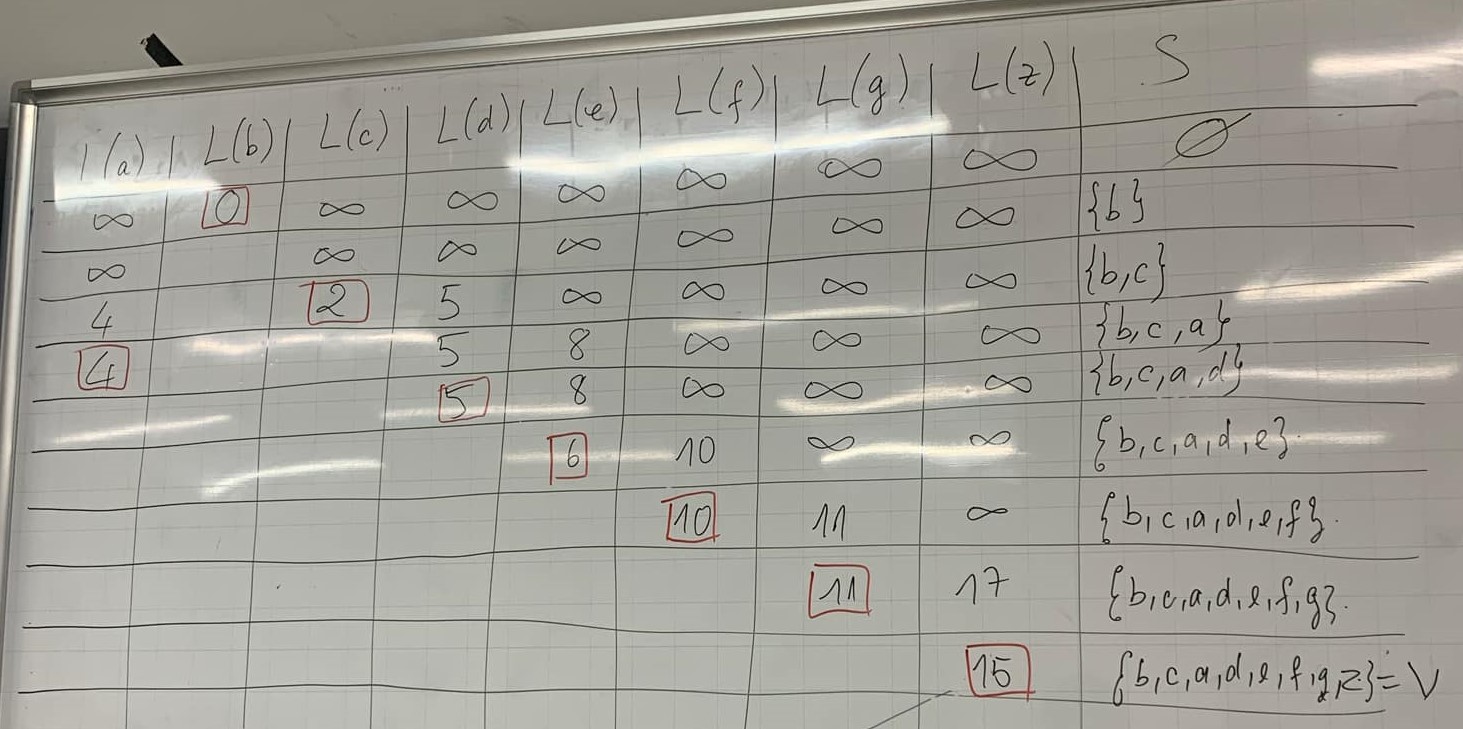 L(a) L(b) L(c) L(d) L(e) L(f) L(g) L(z) S
∞ 0 ∞ ∞ ∞ ∞ ∞ ∞ ∅
∞ ∞ ∞ ∞ ∞ ∞ ∞ {b}
4 2 5 ∞ ∞ ∞ ∞ {b,c}
4 5 8 ∞ ∞ ∞ {b,c,a}
5 8 ∞ ∞ ∞ {b,c,a,d}
6 10 ∞ ∞ {b,c,a,d,e}.
10 11 ∞ {b,c,a,d,e,f}.
11 17 {b,c,a,d,e,f,g}.
15 {b,c,a,d,e,f,g,z}=V